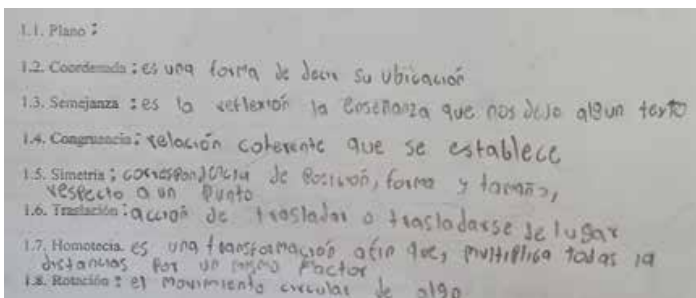 1.1. Plano :
1.2. Coordenada : es una forma de decir su ubicación
1.3. Semejanza : es la reflexión la enseñanza que nos dejo algun texto
1.4. Congruencia : relación coherente que se establece
1.5. Simetria : correspondencia de posición, forma y tamaño,
respecto a un punto
1.6. Traslación : acción de trasladar o trasladarse de lugar
1.7. Homotecia. es una transformación afin que, multiplica todas la
distancias por un mismo factor
1.8. Rotación : el movimiento circular de algo